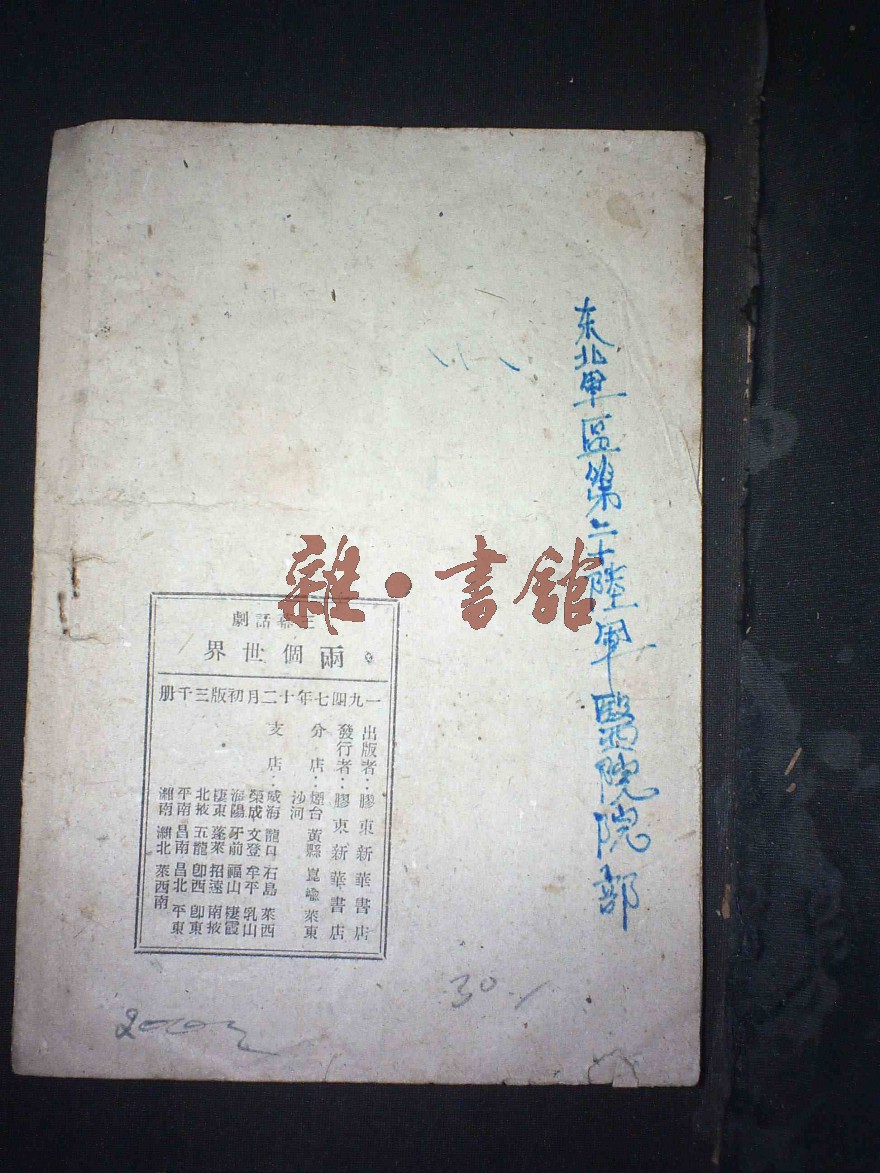 东北军區第二十陸軍醫院院部
雜·書館
三幕話劇
兩個世界
一九四七年十二月初版三千册
出版者：膠東新華書店
發行者：膠東新華書店
分店：煙台 黃縣 崑崳 萊東
沙河
支店：威海 龍口 石島 萊西
榮成 文登 牟平 乳山
海陽 牙前 福山 棲霞
棲東 蓬萊 招遠 南掖
北掖 五龍 卽西 卽東
平南 昌南 昌北 平東
濰南 濰北 萊西南
30